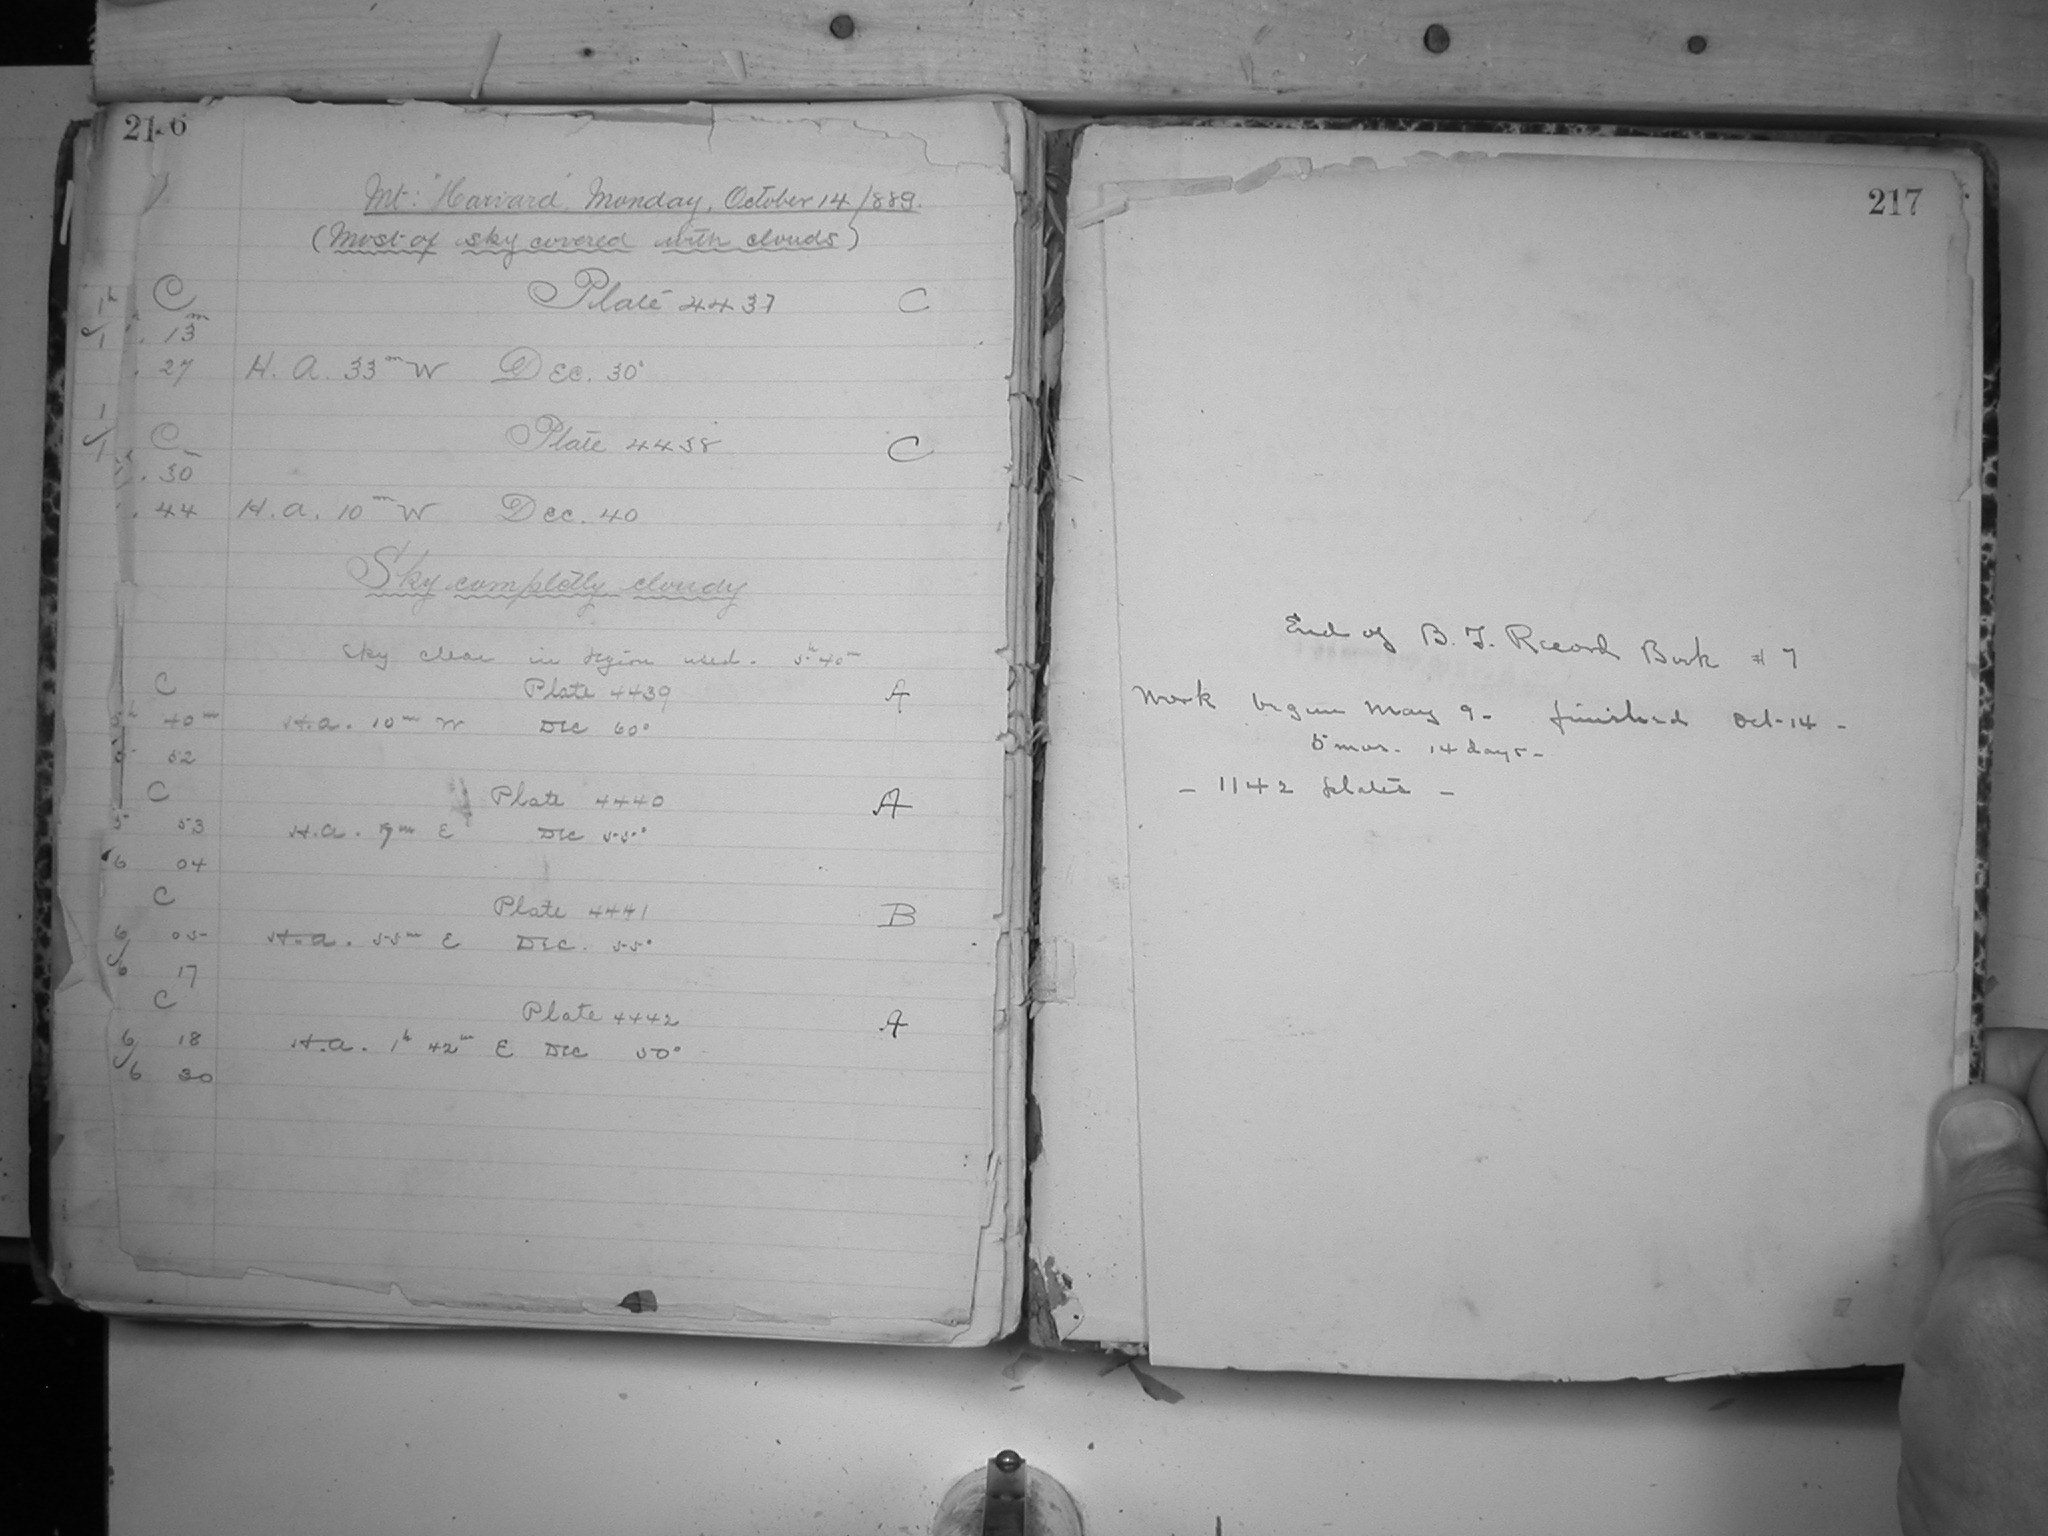 216
Mt: "Harvard", Monday, October 14/889.
(Most of sky covered with clouds)
1h C Plate 4437 C
1 . 13m
. 27 H. A. 33m W Dec. 30°
1
1 C Plate 4438 C
1h . 30m
. 44 H. A. 10m W Dec. 40
Sky completly cloudy
Sky clear in region used. 5h 40m
C Plate 4439 A
5h 40m H.A. 10m W Dec 60°
5 52
C Plate 4440 A
5 53 H.A. m E Dec 55°
6 04
C Plate 4441 B
6 05 H.A. 55m E Dec. 55°
6 17
C Plate 4442 A
6 18 H.A. 1h 42m E Dec 50°
6 30
217
End of B. T. Record Book # 7
Work begun May 9 - finished Oct-14 -
5 mos. 14 days -
- 1142 plates -